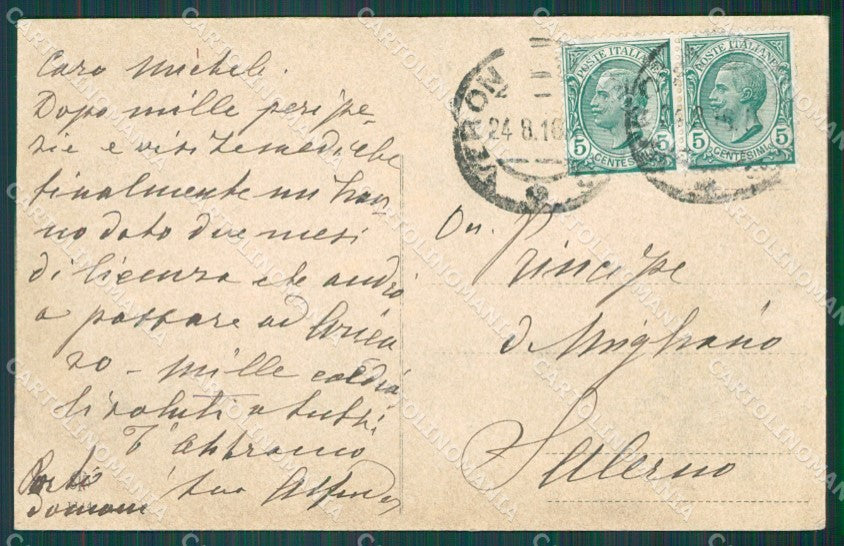 Caro Michele.
Dopo mille peripe-
zie e visite mediche
finalmente mi han-
no dato due mesi
di licenza che andrò
a passare ad
zo - mille cordia
li saluti a tutti
T'abbraccio
tuo Alfredo
Parto
domani
POSTE ITALIANE
5 5
CENTESIMI
POSTE ITALIANE
5 5
CENTESIMI
VERON
24 8.16
On. Principe
di Migliano
Salerno
CARTOLINOMANIA